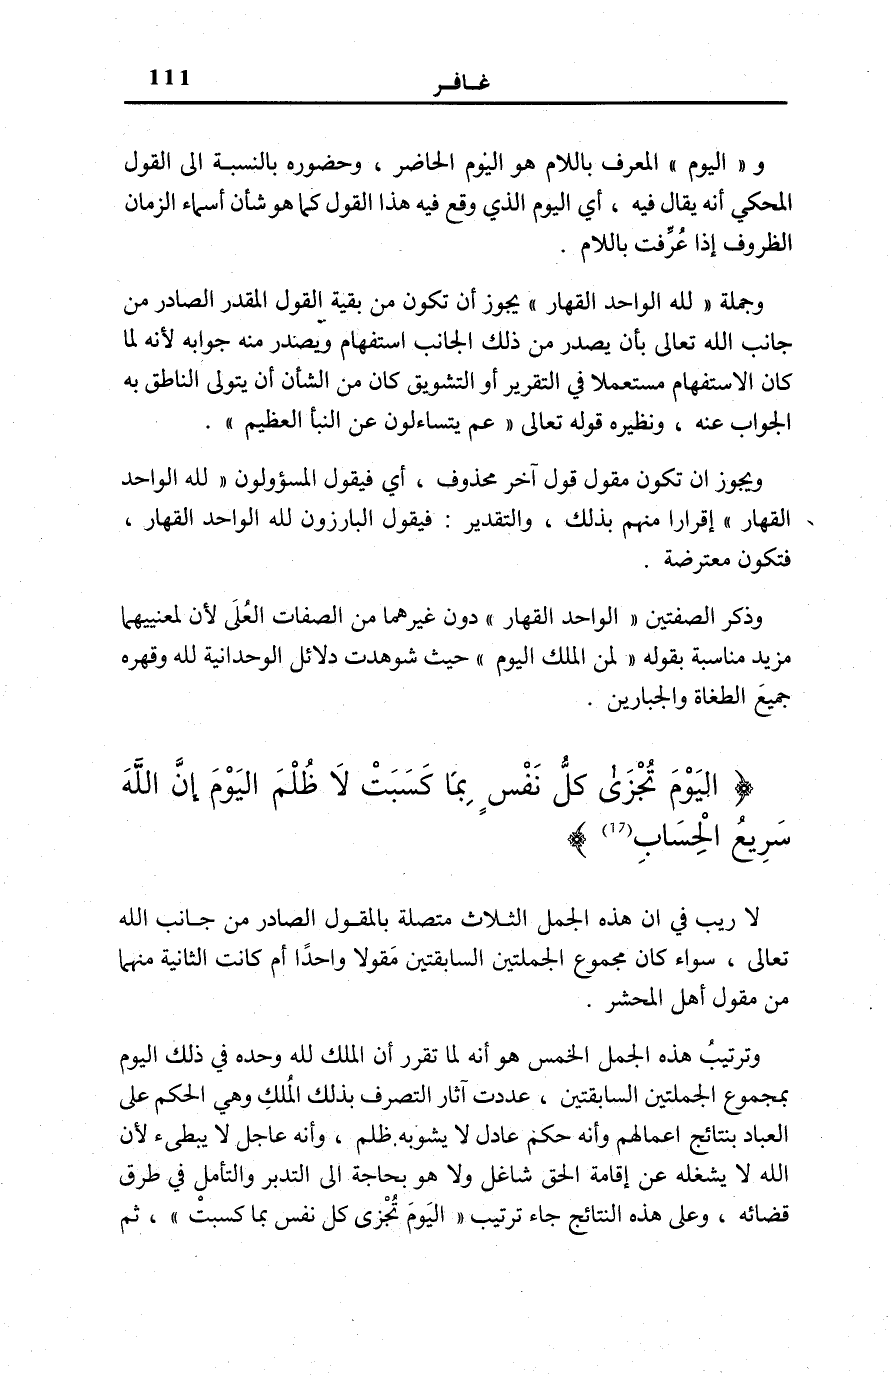 غـافـر 111
و « اليوم » المعرف باللام هو اليوم الحاضر ، وحضوره بالنسبـة الى القول
المحكي أنه يقال فيه ، أي اليوم الذي وقع فيه هذا القول كما هو شأن أسماء الزمان
الظروف إذا عُرِّفت باللام .
وجملة « لله الواحد القهار » يجوز أن تكون من بقية القول المقدر الصادر من
جانب الله تعالى بأن يصدر من ذلك الجانب استفهام ويصدر منه جوابه لأنه لما
كان الاستفهام مستعملا في التقرير أو التشويق كان من الشأن أن يتولى الناطق به
الجواب عنه ، ونظيره قوله تعالى « عم يتساءلون عن النبأ العظيم » .
ويجوز ان تكون مقول قول آخر محذوف ، أي فيقول المسؤولون « لله الواحد
القهار » إقرارا منهم بذلك ، والتقدير : فيقول البارزون لله الواحد القهار ،
فتكون معترضة .
وذكر الصفتين « الواحد القهار » دون غيرهما من الصفات العُلَى لأن لمعنييهما
مزيد مناسبة بقوله « لمن الملك اليوم » حيث شوهدت دلائل الوحدانية لله وقهره
جميعَ الطغاة والجبارين .
﴿ اليَوْمَ تُجْزَىٰ كلُّ نَفْسٍ بِمَا كَسَبَتْ لَا ظُلْمَ اليَوْمَ إنَّ اللَّهَ
سَرِيعُ الْحِسَابِ (17) ﴾
لا ريب في ان هذه الجمل الثـلاث متصلة بالمقـول الصادر من جـانب الله
تعالى ، سواء كان مجموع الجملتين السابقتين مَقولا واحدًا أم كانت الثانية منهما
من مقول أهل المحشر .
وترتيبُ هذه الجمل الخمس هو أنه لما تقرر أن الملك لله وحده في ذلك اليوم
بمجموع الجملتين السابقتين ، عددت آثار التصرف بذلك المُلكِ وهي الحكم على
العباد بنتائج اعمالهم وأنه حكم عادل لا يشوبه ظلم ، وأنه عاجل لا يبطىء لأن
الله لا يشغله عن إقامة الحق شاغل ولا هو بحاجة الى التدبر والتأمل في طرق
قضائه ، وعلى هذه النتائج جاء ترتيب « اليَومَ تُجْزى كل نفس بما كسبتْ » ، ثم